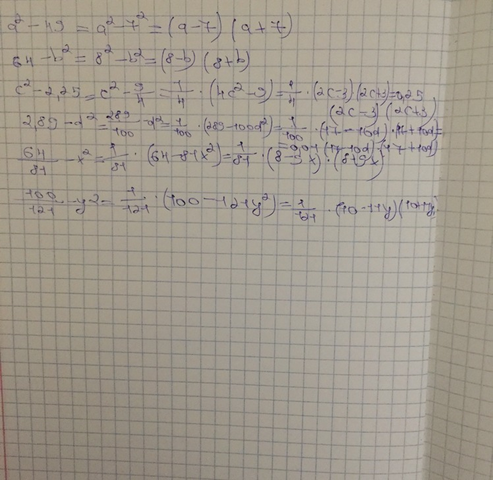 a² - 49 = a² - 7² = (a - 7) (a + 7)
64 - b² = 8² - b² = (8 - b) (8 + b)
c² - 2,25 = c² - 9/4 = 1/4 · (4c² - 9) = 1/4 · (2c - 3) (2c + 3) = 0,25
(2c - 3) (2c + 3)
2,89 - d² = 289/100 - d² = 1/100 · (289 - 100d²) = 1/100 · (17 - 10d) · (17 + 10d) =
= 0,01 (17 - 10d) (17 + 10d)
64/81 - x² = 1/81 · (64 - 81x²) = 1/81 · (8 - 9x) · (8 + 9x)
100/121 - y² = 1/121 · (100 - 121y²) = 1/121 · (10 - 11y) (10 + 11y)